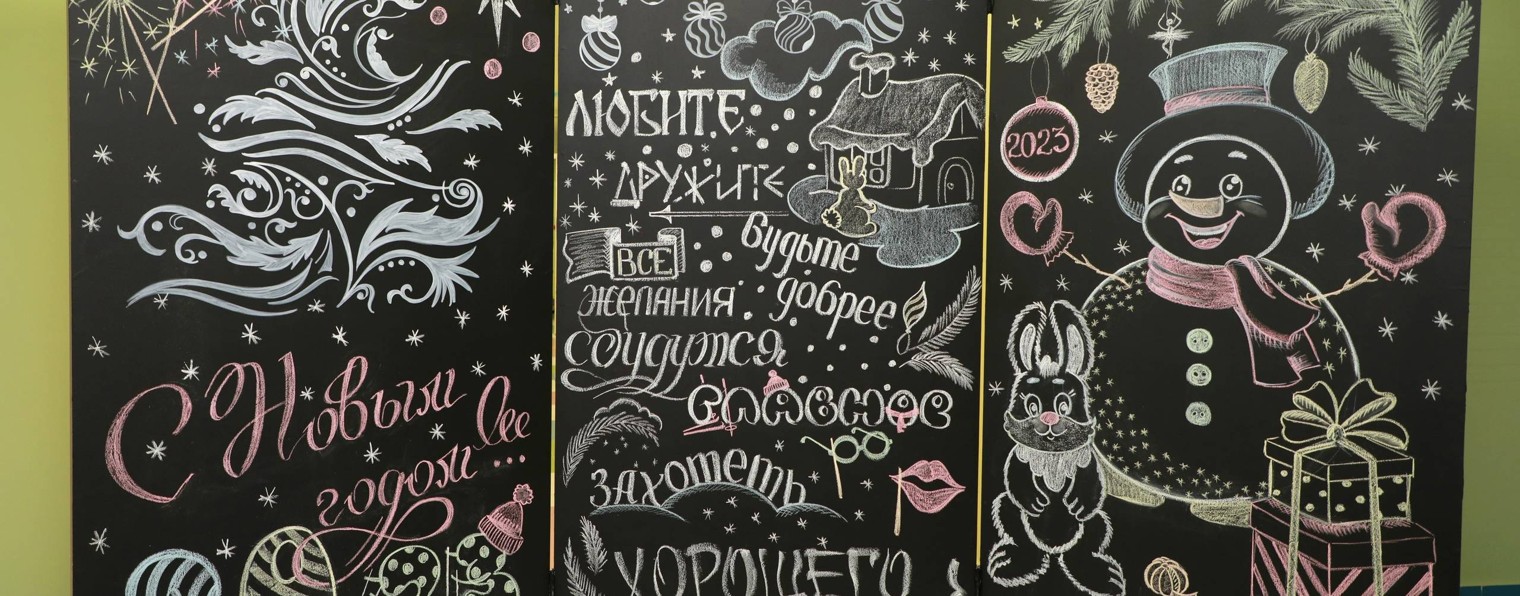 С Новым
годом
ЛЮБИТЕ
ДРУЖИТЕ
будьте
добрее
ВСЕ
желания
сбудутся
главное
захотеть
ХОРОШЕГО
2023